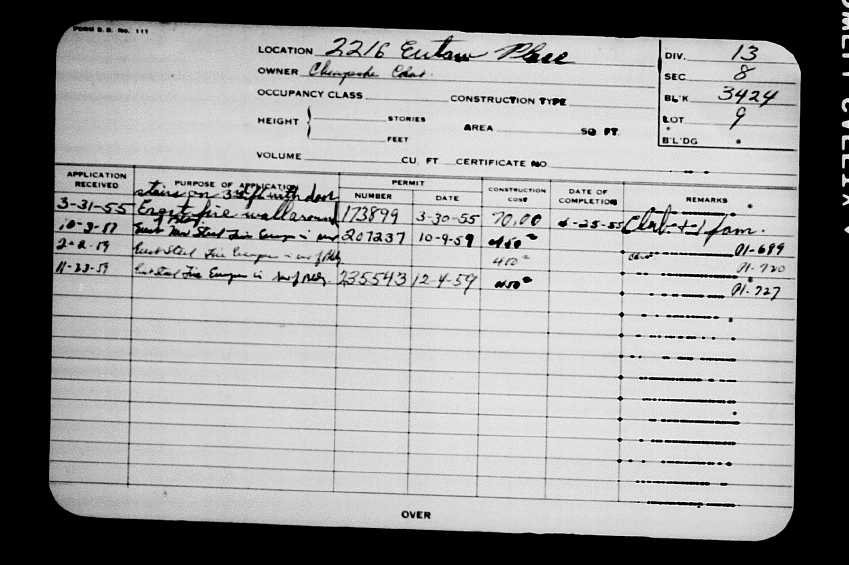 FORM B. B. No. 111
LOCATION 2216 Eutaw Place
OWNER Chesapeake
OCCUPANCY CLASS CONSTRUCTION TYPE
HEIGHT STORIES
FEET
AREA SQ. FT.
VOLUME CU. FT. CERTIFICATE NO
DIV. 13
SEC 8
BL'K 3424
LOT 9
B'L'DG
APPLICATION RECEIVED PURPOSE OF APPLICATION PERMIT NUMBER DATE CONSTRUCTION COST DATE OF COMPLETION REMARKS
stairs on 3rd fl with door
3-31-55 Erect fire wall around 173899 3-30-55 70.00 -25-55 Club + 1 fam.
Erect New Steel Fire Escape in 207237 10-9-59 450 01-699
Erect Steel Fire Escape - 450 01-720
11-23-59 Erect Steel Fire Escape in 235543 12-4-59 450 01-727
OVER